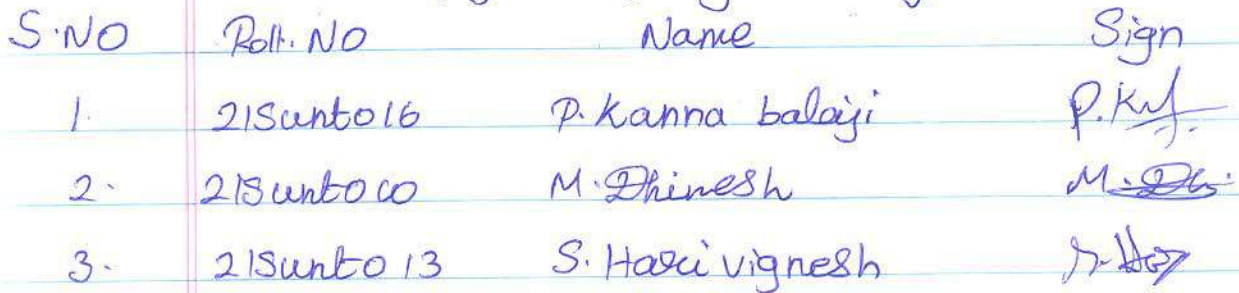 S.NO Roll.NO Name Sign
1. 21Sunto16 P. Kanna balaji P.K
2. 21Sunto10 M. Dhinesh M. Dh.
3. 21Sunto13 S. Hari vignesh